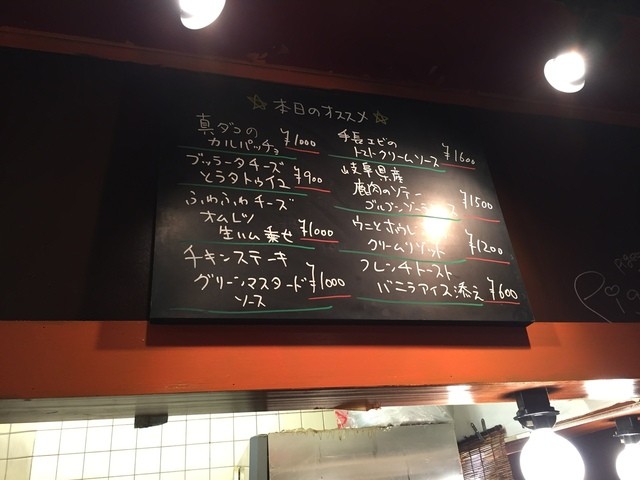 ☆本日のオススメ☆
真ダコの
カルパッチョ ¥1000
ブッラータチーズ
とラタトゥイユ ¥900
ふわふわチーズ
オムレツ
生ハム乗せ ¥1000
チキンステーキ
グリーンマスタード
ソース ¥1000
手長エビの
トマトクリームソース ¥1600
岐阜県産
鹿肉のソテー
ゴルゴンゾーラソース ¥1500
ウニとホウレン
クリームリゾット ¥1200
フレンチトースト
バニラアイス添え ¥600